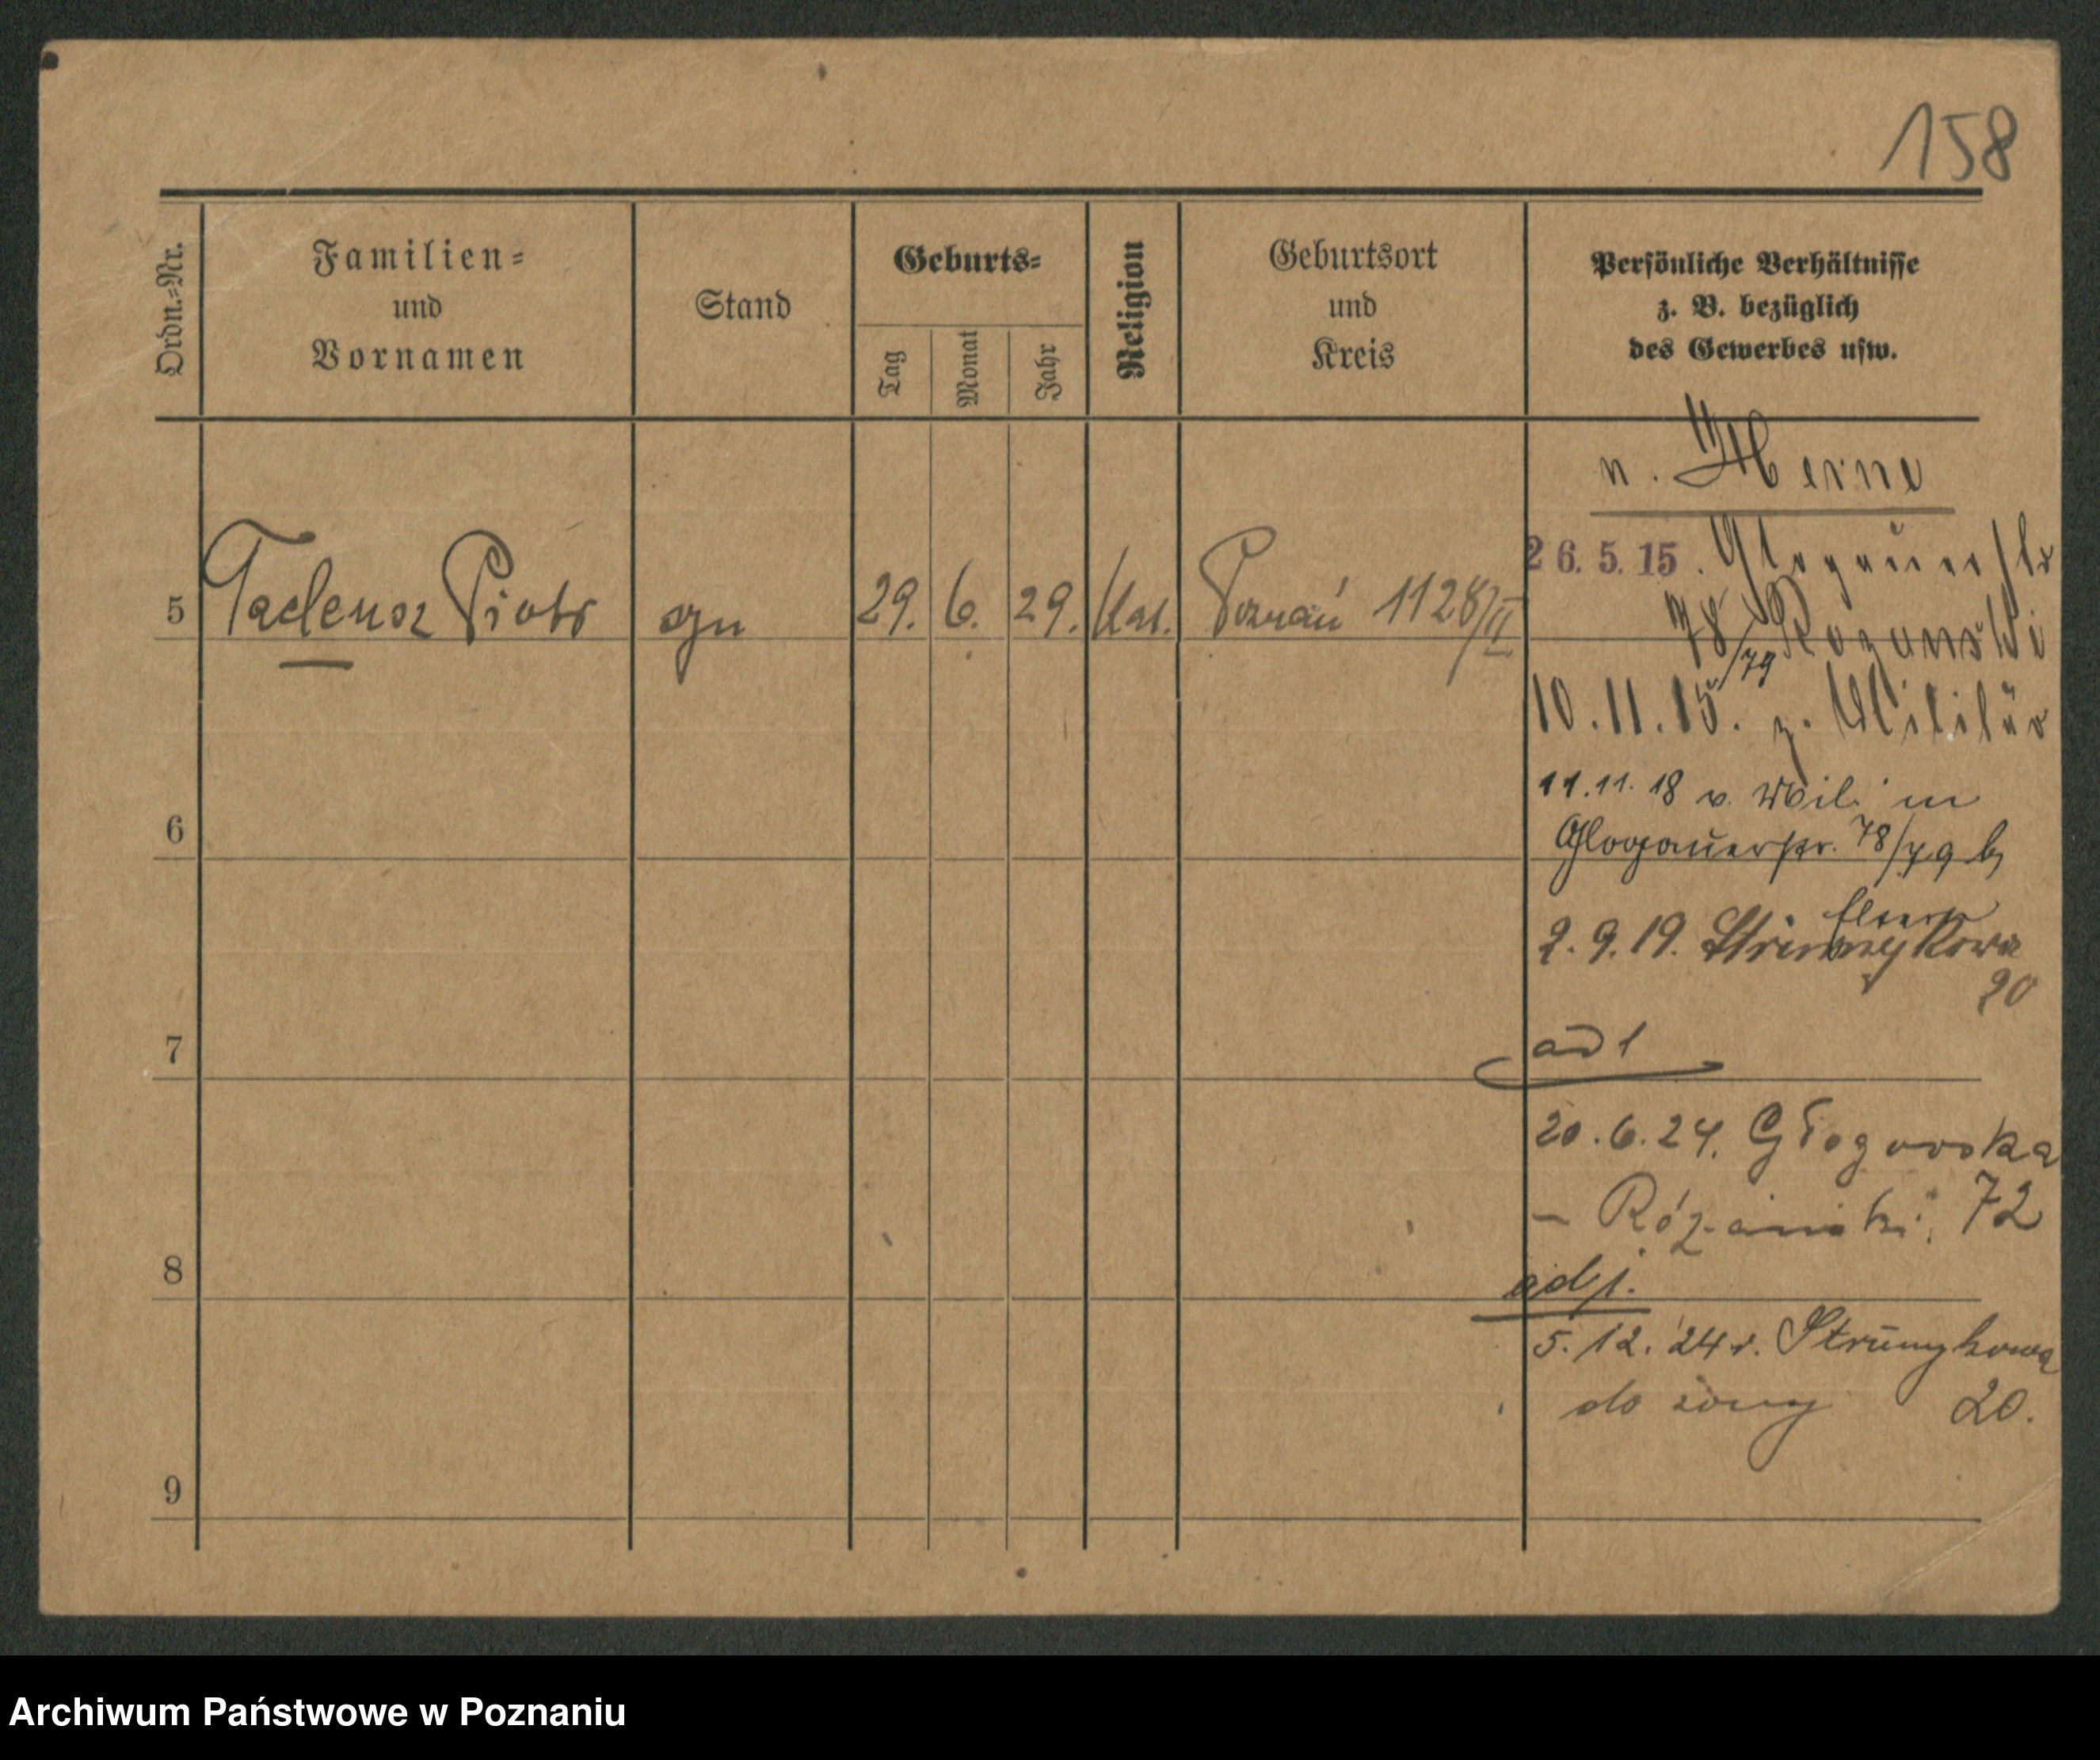 158
Ordn.=Nr.
Familien=
und
Vornamen
Stand
Geburts=
Tag
Monat
Jahr
Religion
Geburtsort
und
Kreis
Persönliche Verhältnisse
z. B. bezüglich
des Gewerbes usw.
n. Herne
26.5.15. Glogauerstr
78/79 Rozanski
5 Tadeusz Piotr syn 29. 6. 29. Kat. Poznań 1128/II
10.11.15. z. Militär
11.11.18 v. Mil. in
6
Glogauerstr. 78/79 b/
Eltern
2.9.19. Strumykowa
20
7
ad 1
20.6.24. Głogowska
– Różański, 72
8
ad 1.
5.12.24 r. Strumykowa
do żony 20.
9
Archiwum Państwowe w Poznaniu